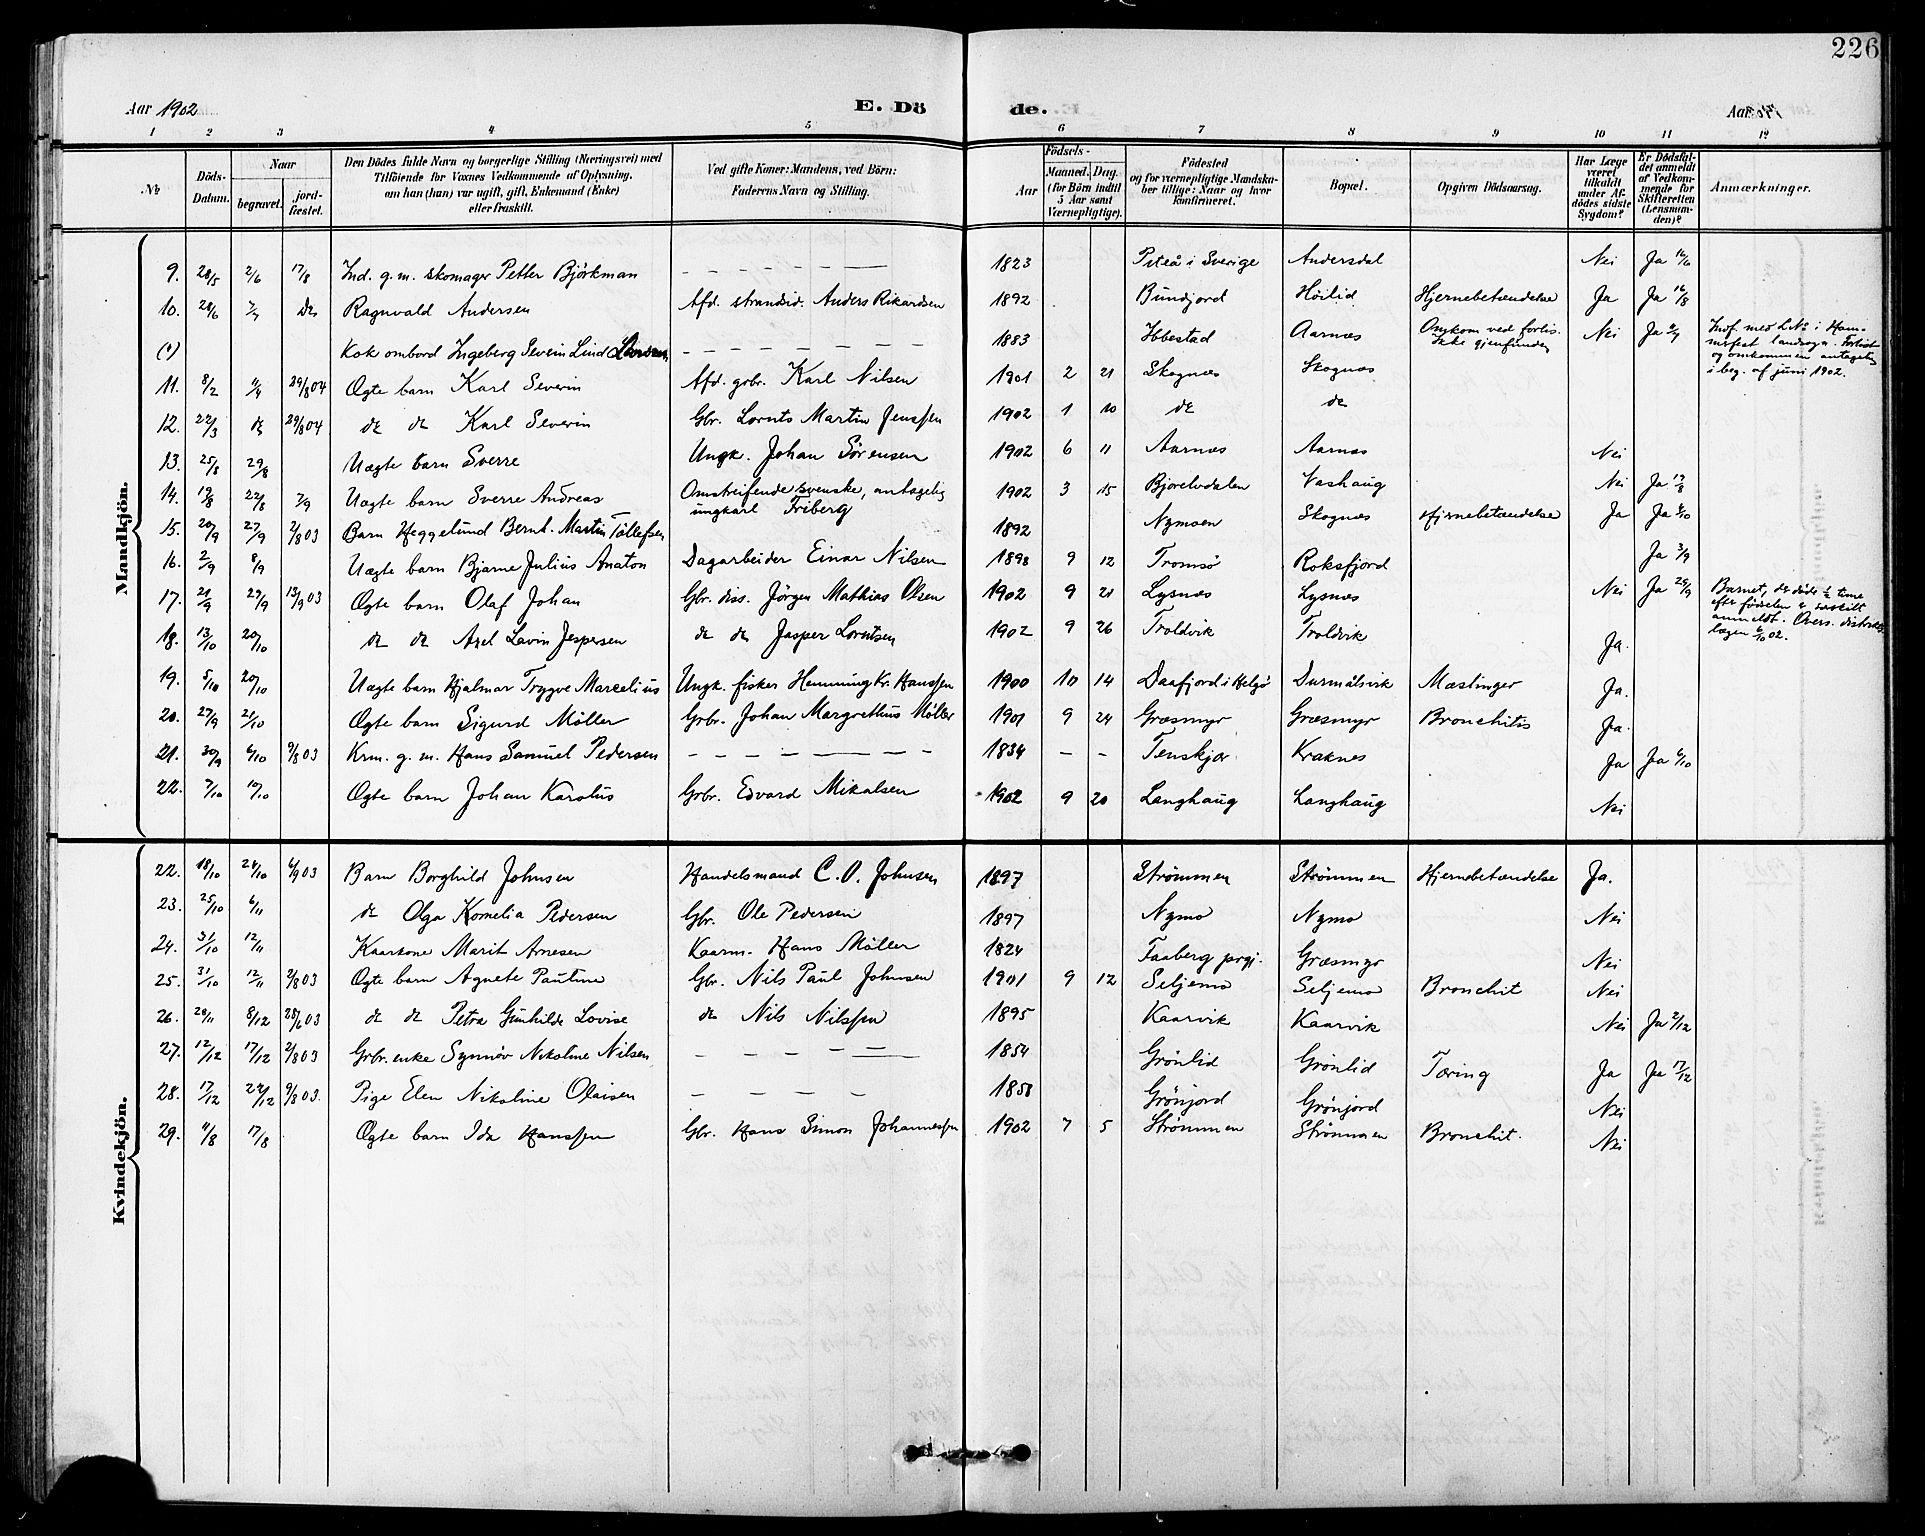 226
Aar 1902 E. Dö de. Aar
1 2 3 4 5 6 7 8 9 10 11 12
№ Döds-Datum. Naar begravet. jord-fæstet. Den Dödes fulde Navn og borgerlige Stilling (Næringsvei) med Tilföiende for Voxnes Vedkommende af Oplysning, om han (hun) var ugift, gift, Enkemand (Enke) eller fraskilt. Ved gifte Koner: Mandens, ved Börn: Faderens Navn og Stilling. Födsels- Aar Maaned. Dag. (for Börn indtil 5 Aar samt Værnepligtige). Födested og for værnepligtige Mandska-ber tillige: Naar og hvor konfirmeret. Bopæl. Opgiven Dödsaarsag. Har Læge været tilkaldt under Af-dödes sidste Sygdom? Er Dödsfal-det anmeldt af Vedkom-mende for Skifteretten (Lensman-den)? Anmærkninger.
Mandkjön.
9. 28/5 2/6 17/8 Ind. g. m. skomager Petter Björkman — — — 1823 Piteå i Sverige Andersdal Nei Ja 16/6
10. 28/6 do Ragnvald Andersen Afd. strandsid. Anders Rikardsen 1892 Bundjord Höilid Hjernebetændelse Ja Ja 16/8
(1) Kok ombord Ingeberg Severin Lind — — — 1883 Ibbestad Aarnæs Omkom ved forlis. Ikke gjenfunden Nei Ja Indf. med L№ 1 Ham-merfest landsogn. Forlist og omkommen antagelig i beg. af juni 1902.
11. 8/2 29/8 04 Ægte barn Karl Severin Afd. gbr. Karl Nilsen 1901 2 21 Skognæs Skognæs
12. 22/3 do 29/8 04 do do Karl Severin Gbr. Lornts Martin Jenssen 1902 1 10 do do
13. 25/8 29/8 Uægte barn Sverre Ungk. Johan Sörensen 1902 6 11 Aarnæs Aarnæs Nei
14. 19/8 22/8 7/9 Uægte barn Sverre Andreas Omstreifende svenske, antagelig ungkarl Friberg 1902 3 15 Bjorelvdalen Vashaug Nei Ja 19/8
15. 20/9 27/9 2/8 03 Barn Heggelund Bernt. Martin Tollefsen 1892 Nymoen Skognæs Hjernebetændelse Ja Ja
16. 2/9 8/9 Uægte barn Bjarne Julius Anaton Dagarbeider Einar Nilsen 1898 9 12 Tromsö Roksfjord Ja 3/9
17. 21/9 27/9 13/9 03 Ægte barn Olaf Johan Gbr. diss. Jörgen Mathias Olsen 1902 9 21 Lysnæs Lysnæs Nei Ja 29/9 Barnet, der döde ½ time efter födselen særskilt anmeldt. Overs. distrikts-lægen 6/10 02.
18. 13/10 20/10 do do Axel Lavin Jespersen do do Jasper Lorntsen 1902 9 26 Troldvik Troldvik Ja.
19. 5/10 20/10 Uægte barn Hjalmar Trygve Marcelius Ungk. fisker Hemming Kr. Hanssen 1900 10 14 Daafjord i Helgö Durmålsvik Mæslinger Ja.
20. 27/9 21/10 Ægte barn Sigurd Möller Grbr. Johan Margrethus Möller 1901 9 24 Græsmyr Græsmyr Bronchitis Ja.
21. 30/9 6/10 9/8 03 Krm. g. m. Hans Samuel Pedersen — — — 1834 — — Tenskjær Kraknes Ja Ja 6/10
22. 7/10 10/10 Ægte barn Johan Karolus Grbr. Edvard Mikalsen 1902 9 20 Langhaug Langhaug Nei
Kvindekjön.
22. 18/10 24/10 6/9 03 Barn Borghild Johnsen Handelsmand C. O. Johnsen 1897 Strömmen Strömmen Hjernebetændelse Ja.
23. 25/10 6/11 do Olga Kornelia Pedersen Gbr. Ole Pedersen 1897 Nymo Nymo Nei
24. 31/10 12/11 Kaarkone Marit Arnesen Kaarm. Hans Möller 1824 Faaberg prgj. Græsmyr Nei
25. 31/10 12/11 2/8 03 Ægte barn Agnete Pauline Gbr. Nils Paul Johnsen 1901 9 12 Seljemo Seljemo Bronchit Nei
26. 28/11 8/12 28/6 03 do do Petra Gunhilde Lovise do Nils Nilssen 1895 Kaarvik Kaarvik Nei Ja 2/12
27. 12/12 17/12 2/8 03 Grbr. enke Synnöv Nikoline Nilsen — — — 1854 Grönlid Grönlid Tæring Ja Ja 17/12
28. 17/12 24/12 9/8 03. Pige Elen Nikoline Olaisen — — — 1858 Grönjord Grönjord Nei
29. 11/8 17/8 Ægte barn Ida Hanssen Gbr. Hans Simon Johannessen 1902 7 5 Strömmen Strömmen Bronchit. Nei